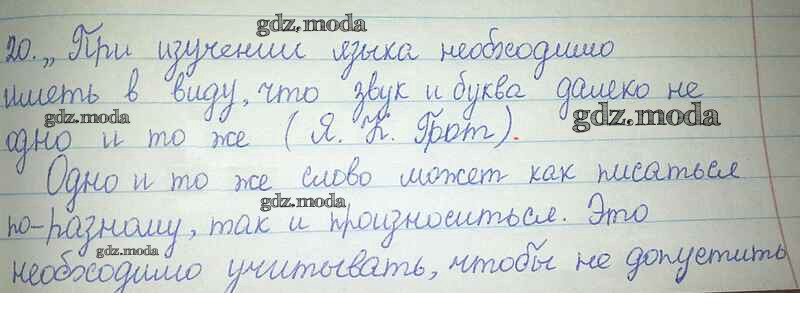 gdz.moda
20. „При изучении языка необходимо
иметь в виду, что звук и буква далеко не
gdz.moda
gdz.moda
одно и то же (Я. К. Грот).
Одно и то же слово может как писаться
gdz.moda
по-разному, так и произноситься. Это
gdz.moda
необходимо учитывать, чтобы не допустить